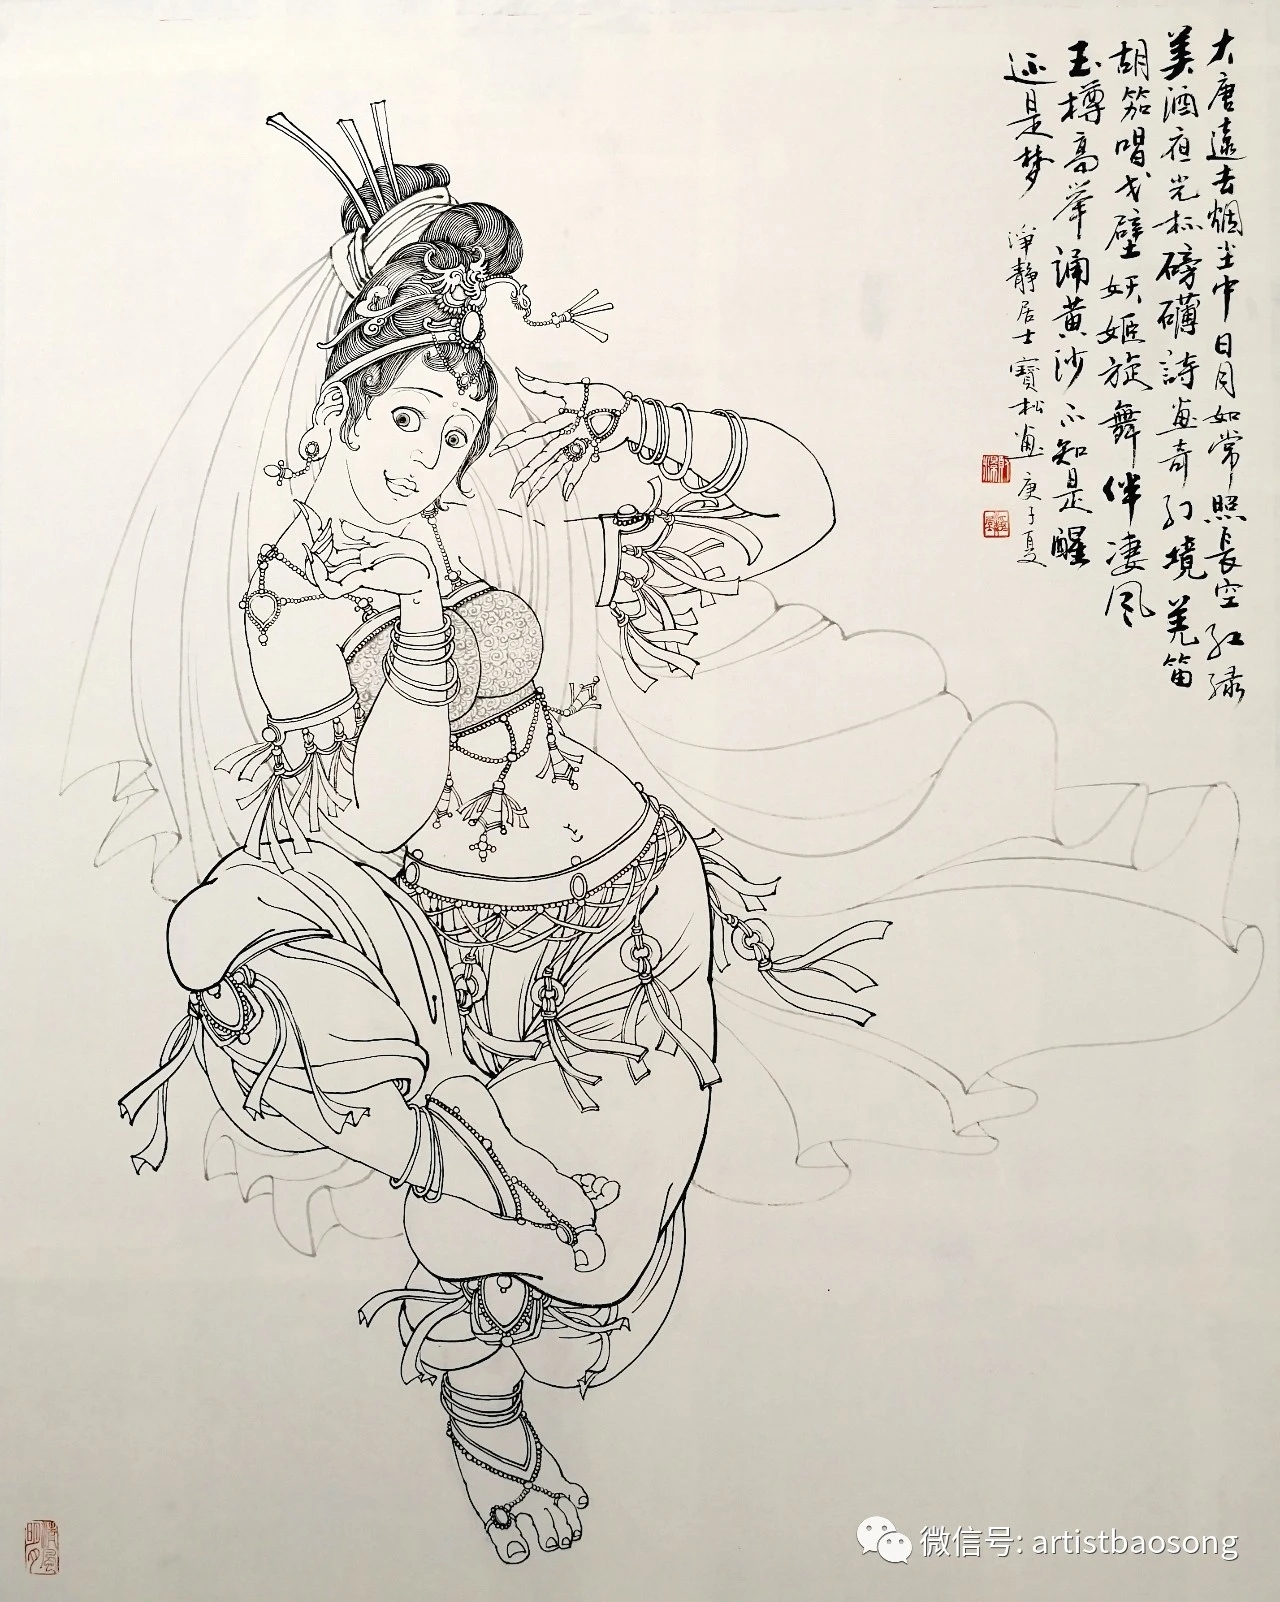 大唐遠去烟尘中日月如常照長空红绿
美酒夜光杯磅礴詩画奇幻境羌笛
胡笳唱戈壁妖姬旋舞伴凄风
玉樽高举诵黄沙不知是醒
还是梦
净静居士寶松画庚子夏
微信号: artistbaosong